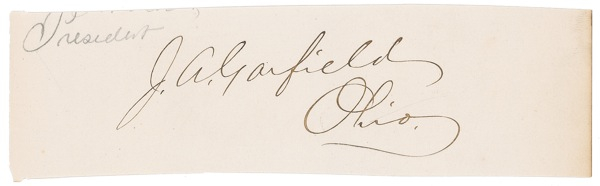 President
J. A. Garfield
Ohio.